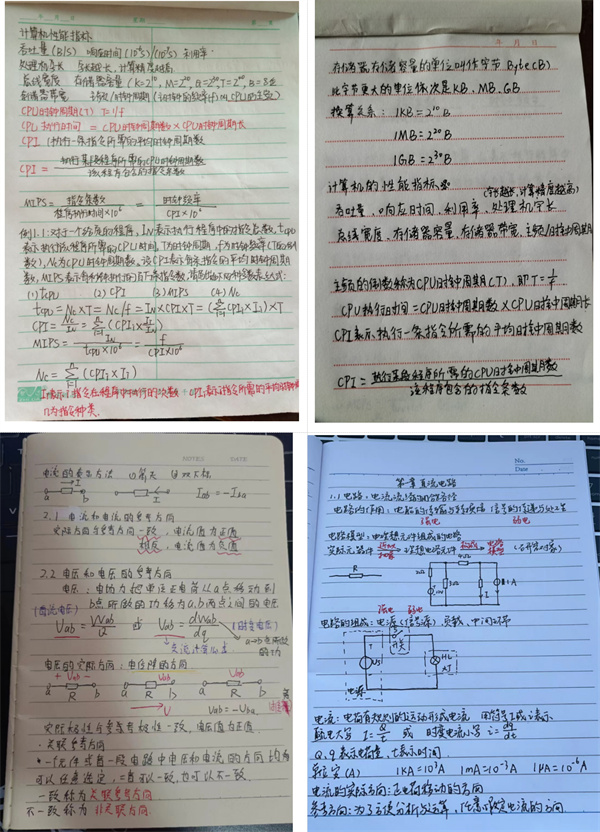 计算机性能指标
吞吐量(B/S) 响应时间(10⁻⁶S)/(10⁻⁹S) 利用率
处理机字长 字长越长,计算精度越高
总线宽度 存储器容量 (K=2¹⁰, M=2²⁰, G=2³⁰, T=2⁴⁰, B=8位
存储器带宽 主频/时钟周期
CPU时钟周期(T) T=1/f
CPU执行时间 = CPU时钟周期数×CPU时钟周期长
CPI (执行一条指令所需的平均时钟周期数
CPI = 执行某段程序所需的CPU时钟周期数
该程序包含的指令条数
MIPS = 指令条数 = 时钟频率
程序执行时间×10⁶ CPI×10⁶
例1.1:对于一个给定的程序, IN表示执行程序中的指令总数, tcpu
表示执行该程序所需的CPU时间, T为时钟周期, f为时钟频率(T的倒
数), Nc为CPU时钟周期数。设CPI表示每条指令的平均时钟周期
数, MIPS表示每秒钟执行的百万条指令数,
(1) tcpu (2) CPI (3) MIPS (4) Nc
tcpu = Nc×T = Nc/f = IN×CPI×T = (∑CPIi×Ii)×T
CPI = Nc/IN = ∑(CPIi×Ii/IN)
MIPS = IN/tcpu×10⁶ = f/CPI×10⁶
Nc = ∑(CPIi×Ii)
Ii表示i指令在程序中执行的次数, CPIi表示i指令所需的平均时钟
n为指令种类.
年 月 日
存储器存储容量的单位叫作字节 Byte(B)
比字节更大的单位依次是KB、MB、GB
换算关系: 1KB=2¹⁰B
1MB=2²⁰B
1GB=2³⁰B
计算机的性能指标: (字长越长,计算精度越高)
吞吐量、响应时间、利用率、处理机字长
总线宽度、存储器容量、存储器带宽、主频/时钟周期
主频的倒数称为CPU时钟周期(T), 即T=1/f
CPU执行时间=CPU时钟周期数×CPU时钟周期长
CPI表示执行一条指令所需的平均时钟周期数
CPI = 执行某段程序所需的CPU时钟周期数
该程序包含的指令条数
NOTES DATE
电流的表示方法 ①箭头 ②双下标
a b I Iab = -Iba
2.1 电流和电流的参考方向
实际方向与参考方向一致, 电流值为正值
相反, 电流值为负值
2.2 电压和电压的参考方向
电压: 电场力把单位正电荷从a点移动到
b点所做的功称为a,b两点之间的电压
(直流电压) Uab = Wab/Q 或 Uab = dWab/dq (时变电压)
电压的实际方向: 电位降的方向
+ Uab - Uab Uab
a R b a R b a R b
U Uab = -Uba
实际极性与参考极性一致, 电压值为正值.
· 关联参考方向
一元件或者一段电路中电压和电流的方向均
可以任意选定, 二者可以一致, 也可以不一致
一致称为关联参考方向
不一致称为非关联方向.
No.
Date
第一章 直流电路
1.1 电路: 电流流通的闭合路径
电路的作用: 电能的传输与转换 信号的传递与处理
强电 弱电
电路模型: 由理想元件组成的电路
实际元器件 理想电路元件 组成 电路模型
R 4Ω 3Ω I
电路的组成: 电源(信号源) 负载, 中间环节
强电 弱电
开关 US HL 电源
电流: 电荷有规则的运动形成电流 用符号I或i表示
I = Q/t 或 时变电流小写 i = dq/dt
Q, q表示电荷量, t表示时间.
单位安(A) 1KA=10³A 1mA=10⁻³A 1μA=10⁻⁶A
电流的实际方向: 正电荷移动的方向
参考方向: 为了方便分析或计算, 任意假定电流的方向.